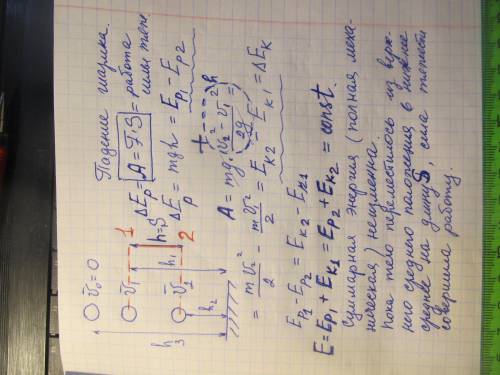 Падение шарика.
v̄₀ = 0
v̄₁
1
h=S
2
v̄₂
h₁
h₂
h₃
ΔEₚ = A = F·S = работа
силы тяж
ΔEₚ = mgh = Eₚ₁ − Eₚ₂
A = mg · (v₂² − v₁²)/2g =
= mv₂²/2 − mv₁²/2 = Eₖ₂ − Eₖ₁ = ΔEₖ
Eₚ₁ − Eₚ₂ = Eₖ₂ − Eₖ₁
E = Eₚ₁ + Eₖ₁ = Eₚ₂ + Eₖ₂ = const.
Суммарная энергия (полная меха-
ническая) неизменна.
Пока тело переместилось из верх-
него среднего положения в нижнее
среднее на длину S, сила тяжести
совершила работу.